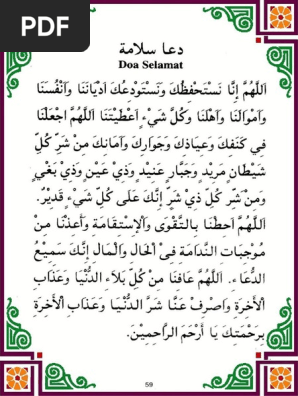 PDF
دعا سلامة
Doa Selamat
اَللّٰهُمَّ إِنَّا نَسْتَحْفِظُكَ وَنَسْتَوْدِعُكَ اَدْيَانَنَا وَاَنْفُسَنَا
وَاَمْوَالَنَا وَاَهْلَنَا وَكُلَّ شَيْءٍ اَعْطَيْتَنَا اَللّٰهُمَّ اجْعَلْنَا
فِي كَنَفِكَ وَعِيَاذِكَ وَجِوَارِكَ وَاَمَانِكَ مِنْ شَرِّ كُلِّ
شَيْطَانٍ مَرِيْدٍ وَجَبَّارٍ عَنِيْدٍ وَذِيْ عَيْنٍ وَذِيْ بَغْيٍ
وَمِنْ شَرِّ كُلِّ ذِيْ شَرٍّ إِنَّكَ عَلَى كُلِّ شَيْءٍ قَدِيْرٌ.
اَللّٰهُمَّ اَحِطْنَا بِالتَّقْوَى وَاْلاِسْتِقَامَةِ وَاَعِذْنَا مِنْ
مُوْجِبَاتِ النَّدَامَةِ فِى الْحَالِ وَالْمَالِ إِنَّكَ سَمِيْعُ
الدُّعَاءِ. اَللّٰهُمَّ عَافِنَا مِنْ كُلِّ بَلَاءِ الدُّنْيَا وَعَذَابِ
اْلاَخِرَةِ وَاصْرِفْ عَنَّا شَرَّ الدُّنْيَا وَعَذَابِ اْلاَخِرَةِ
بِرَحْمَتِكَ يَا أَرْحَمَ الرَّاحِمِيْنَ.
59